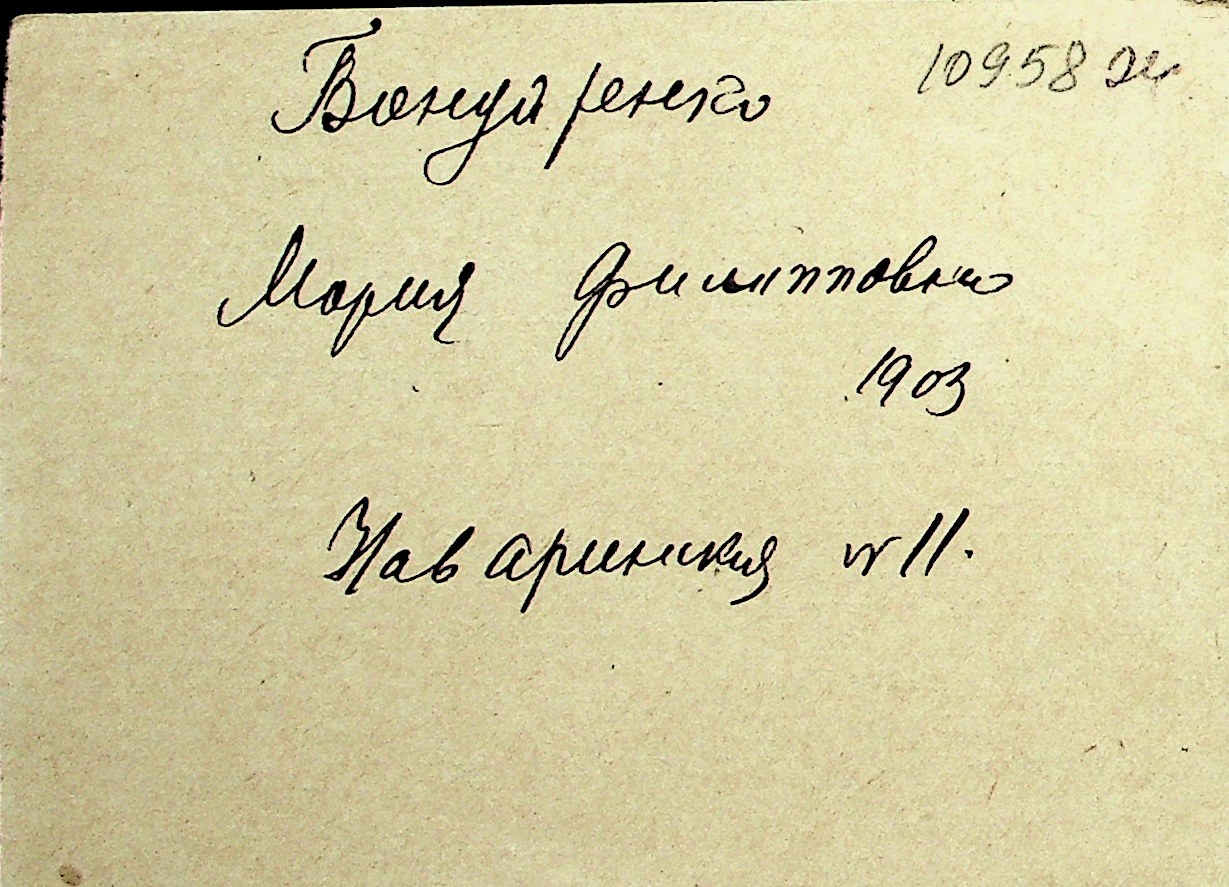 10958 ж
Бондаренко
Мария Филипповна
1903
Наваринкия № 11.